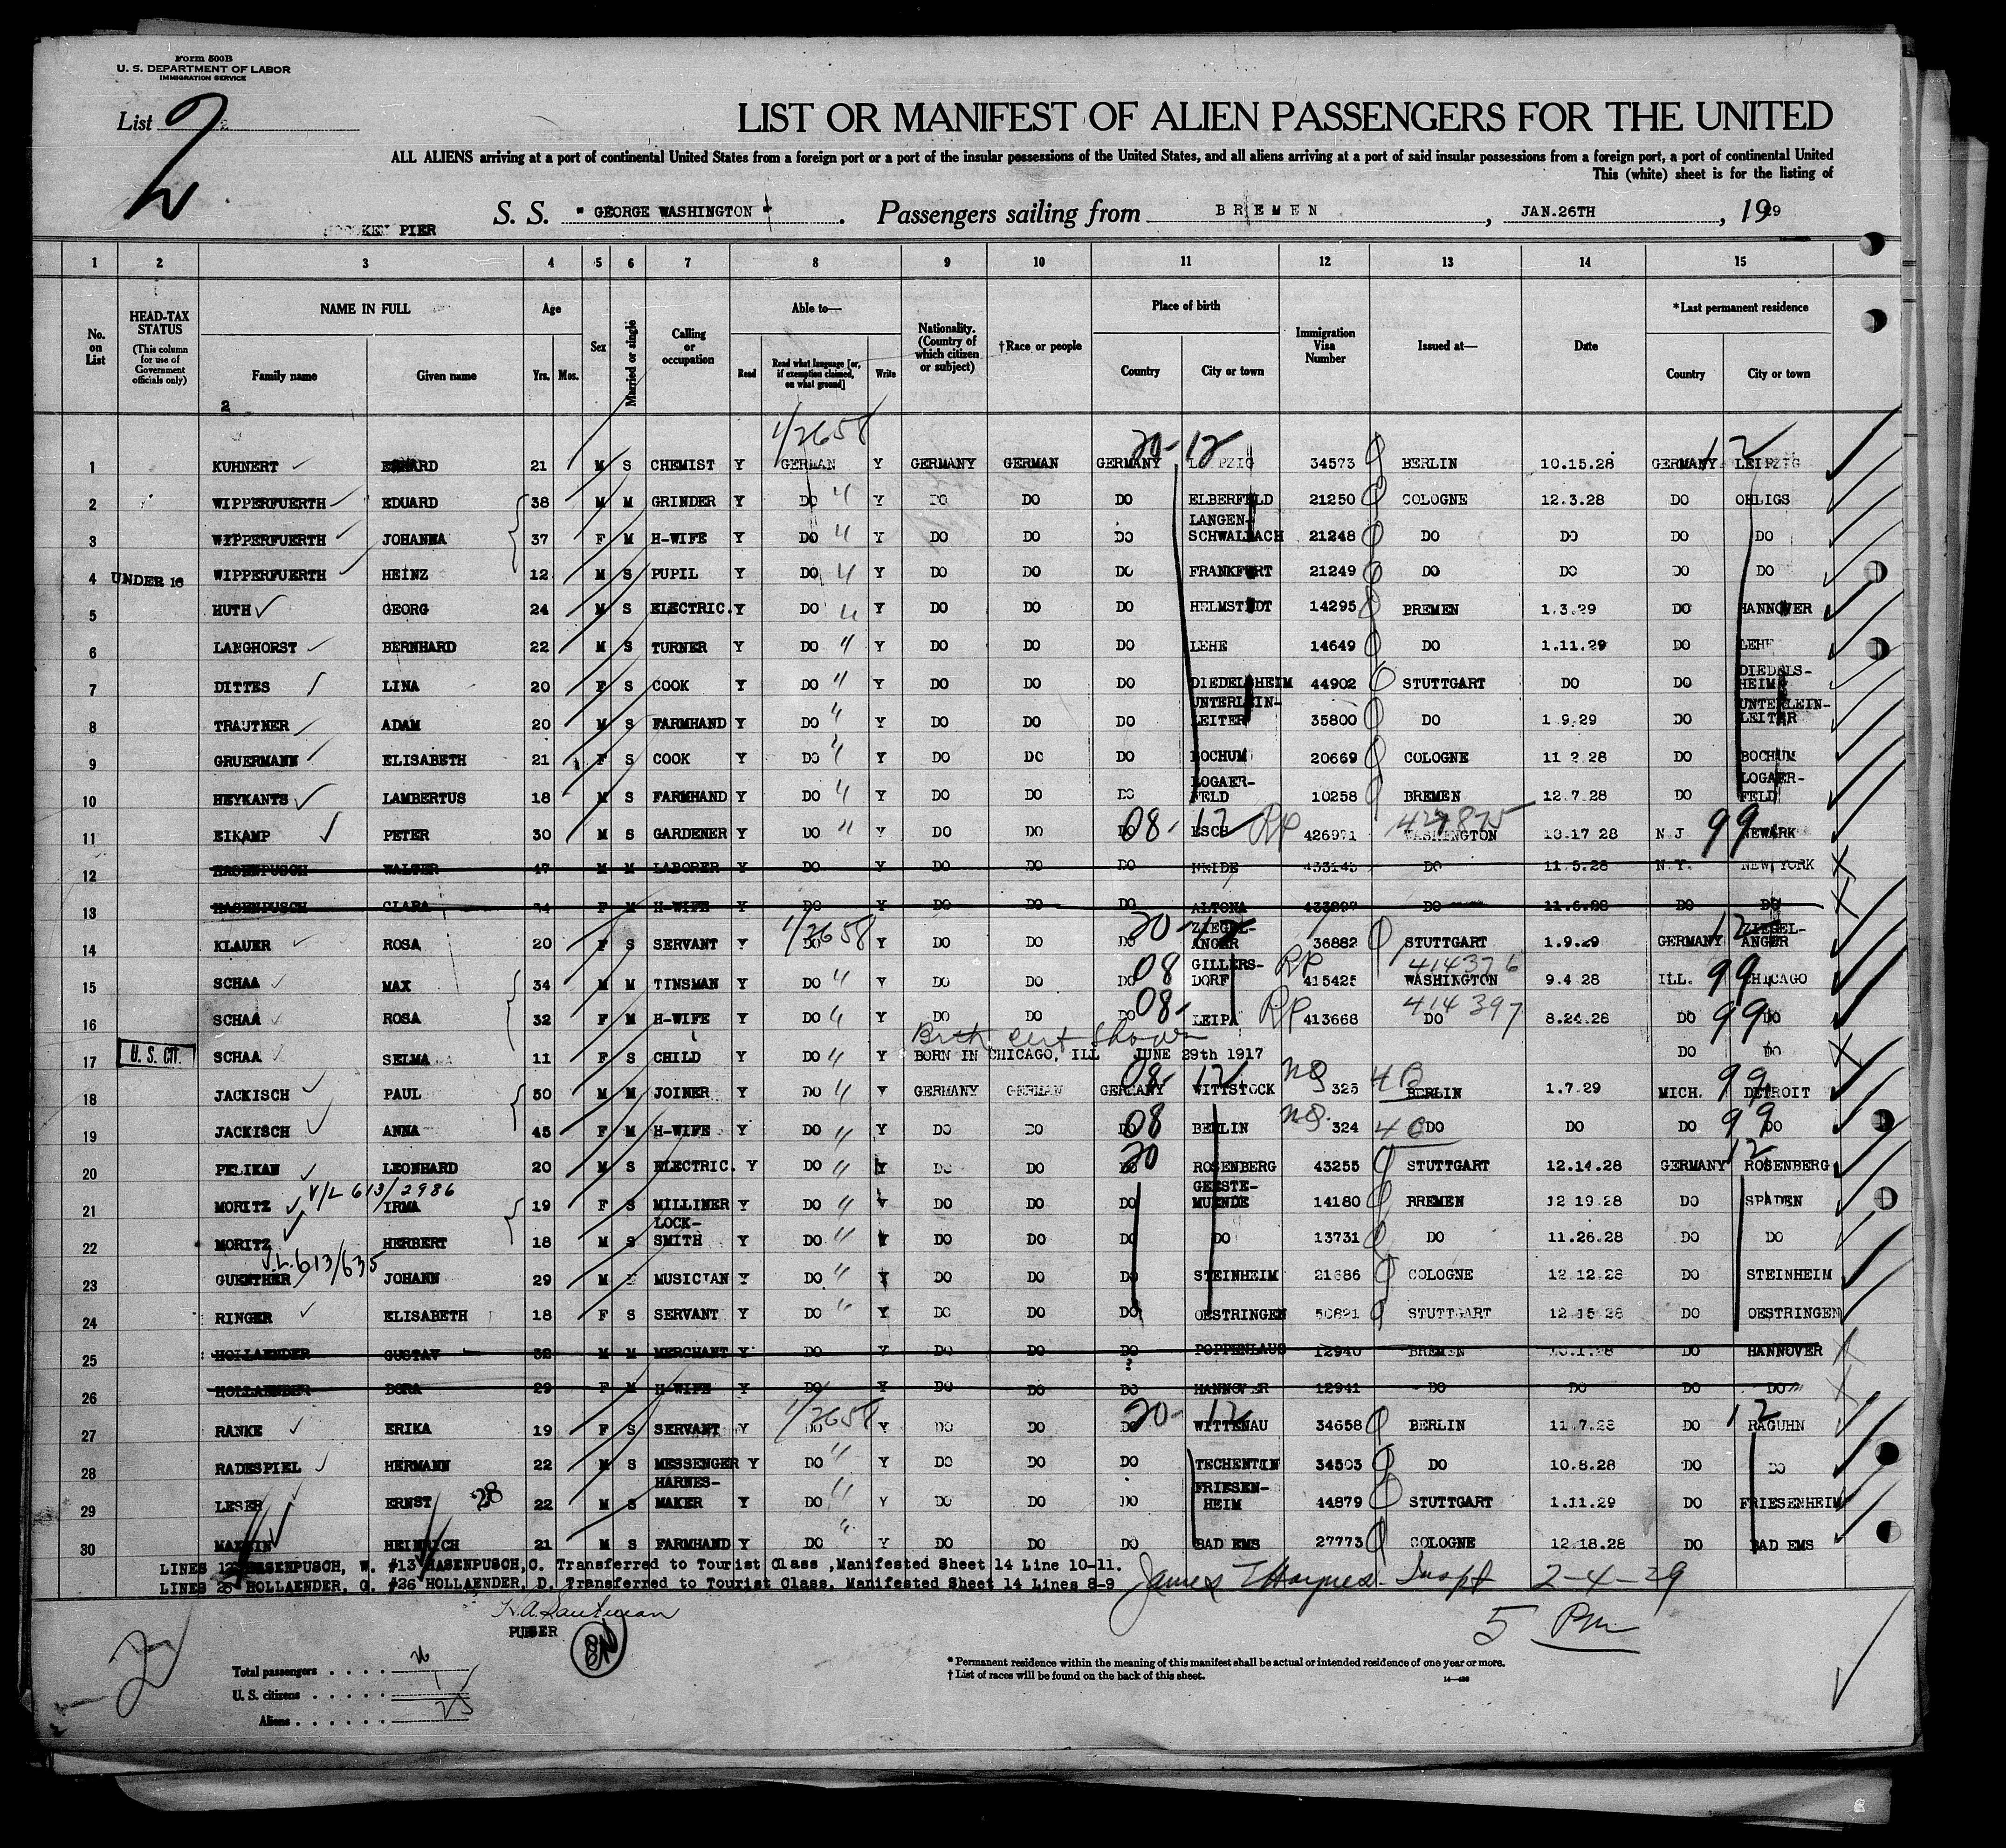 Form 500B
U. S. DEPARTMENT OF LABOR
IMMIGRATION SERVICE
List 2
2
LIST OR MANIFEST OF ALIEN PASSENGERS FOR THE UNITED
ALL ALIENS arriving at a port of continental United States from a foreign port or a port of the insular possessions of the United States, and all aliens arriving at a port of said insular possessions from a foreign port, a port of continental United
This (white) sheet is for the listing of
S. S. " GEORGE WASHINGTON " . Passengers sailing from BREMEN , JAN.26TH , 1929
PIER
1 2 3 4 5 6 7 8 9 10 11 12 13 14 15
No. on List
HEAD-TAX STATUS (This column for use of Government officials only)
NAME IN FULL
Family name Given name
Age Yrs. Mos.
Sex
Married or single
Calling or occupation
Able to— Read Read what language [or, if exemption claimed, on what ground] Write
Nationality. (Country of which citizen or subject)
†Race or people
Place of birth Country City or town
Immigration Visa Number
Issued at—
Date
*Last permanent residence Country City or town
2
4/2658 20-12 12
1 KUHNERT 21 M S CHEMIST Y GERMAN Y GERMANY GERMAN GERMANY LEIPZIG 34573 BERLIN 10.15.28 GERMANY LEIPZIG
2 WIPPERFUERTH EDUARD 38 M M GRINDER Y DO " Y DO DO DO ELBERFELD 21250 COLOGNE 12.3.28 DO OHLIGS
3 WIPPERFUERTH JOHANNA 37 F M H-WIFE Y DO " Y DO DO DO LANGEN-SCHWALBACH 21248 DO DO DO DO
4 UNDER 16 WIPPERFUERTH HEINZ 12 M S PUPIL Y DO " Y DO DO DO FRANKFURT 21249 DO DO DO DO
5 HUTH GEORG 24 M S ELECTRIC. Y DO " Y DO DO DO HELMSTEDT 14295 BREMEN 1.3.29 DO HANNOVER
6 LANGHORST BERNHARD 22 M S TURNER Y DO " Y DO DO DO LEHE 14649 DO 1.11.29 DO LEHE
7 DITTES LINA 20 F S COOK Y DO " Y DO DO DO DIEDELSHEIM 44902 STUTTGART DO DO DIEDELS-HEIM
8 TRAUTNER ADAM 20 M S FARMHAND Y DO " Y DO DO DO UNTERLEIN-LEITER 35800 DO 1 9.29 DO UNTERLEIN-LEITER
9 GRUERMANN ELISABETH 21 F S COOK Y DO " Y DO DO DO BOCHUM 20669 COLOGNE 11 2.28 DO BOCHUM
10 HEYKANTS LAMBERTUS 18 M S FARMHAND Y DO " Y DO DO DO LOGAER-FELD 10258 BREMEN 12.7.28 DO LOGAER-FELD
11 EIKAMP PETER 30 M S GARDENER Y DO " Y DO DO DO 08-12 ESCH RP 426971 427875 WASHINGTON 10.17 28 N J 99 NEWARK
12 HASENPUSCH WALTER 47 M M LABORER Y DO Y DO DO DO 433145 DO 11.5.28 N.Y. NEW YORK
13 HASENPUSCH CLARA 34 F M H-WIFE Y DO Y DO DO DO ALTONA DO 11.6.28 DO DO
14 KLAUER ROSA 20 F S SERVANT Y 4/2658 DO Y DO DO DO 20-12 ZIEGEL-ANGER 36882 STUTTGART 1.9.29 GERMANY 12 ZIEGEL-ANGER
15 SCHAA MAX 34 M M TINSMAN Y DO " Y DO DO DO 08 GILLERS-DORF RP 415425 414376 WASHINGTON 9.4 28 ILL. 99 CHICAGO
16 SCHAA ROSA 32 F M H-WIFE Y DO " Y DO DO DO 08- LEIPA RP 413668 414397 DO 8.24.28 DO 99 DO
Birth cert shows
17 U. S. CIT. SCHAA SELMA 11 F S CHILD Y DO " Y BORN IN CHICAGO, ILL JUNE 29th 1917 DO DO
18 JACKISCH PAUL 50 M M JOINER Y DO " Y GERMANY GERMAN GERMANY 08- 12 WITTSTOCK 325 BERLIN 1.7.29 MICH. 99 DETROIT
19 JACKISCH ANNA 45 F M H-WIFE Y DO " Y DO DO DO 08 BERLIN 324 DO DO DO 99 DO
20 PELIKAN LEONHARD 20 M S ELECTRIC. Y DO " Y DO DO DO 20 ROSENBERG 43255 STUTTGART 12.14.28 GERMANY 12 ROSENBERG
V/L 613/2986
21 MORITZ IRMA 19 F S MILLINER Y DO " Y DO DO DO GEESTE-MUENDE 14180 BREMEN 12 19.28 DO SPADEN
22 MORITZ HERBERT 18 M S LOCK-SMITH Y DO " Y DO DO DO DO 13731 DO 11.26.28 DO DO
V.L. 613/635
23 GUENTHER JOHANN 29 M MUSICIAN Y DO " Y DO DO DO STEINHEIM 21686 COLOGNE 12.12.28 DO STEINHEIM
24 RINGER ELISABETH 18 F S SERVANT Y DO " Y DO DO DO OESTRINGEN 50821 STUTTGART 12.15 28 DO OESTRINGEN
25 HOLLAENDER GUSTAV 38 M M MERCHANT Y DO Y DO DO DO POPPENLAUS 12940 BREMEN DO HANNOVER
26 HOLLAENDER DORA 29 F M H-WIFE Y DO Y DO DO DO HANNOVER 12941 DO DO DO DO
27 RANKE ERIKA 19 F S SERVANT Y 4/2658 DO Y DO DO DO 20-12 WITTENAU 34658 BERLIN 11.7.28 DO 12 RAGUHN
28 RADESPIEL HERMANN 22 M S MESSENGER Y DO " Y DO DO DO TECHENTIN 34503 DO 10.8.28 DO DO
29 LESER ERNST 28 22 M S HARNES-MAKER Y DO " Y DO DO DO FRIESEN-HEIM 44879 STUTTGART 1.11.29 DO FRIESENHEIM
30 HEINRICH 21 M S FARMHAND Y DO " Y DO DO DO BAD EMS 27773 COLOGNE 12.18.28 DO BAD EMS
LINES 12 HASENPUSCH, W. #13 HASENPUSCH,C. Transferred to Tourist Class ,Manifested Sheet 14 Line 10-11.
LINES 25 HOLLAENDER, G. #26 HOLLAENDER, D. Transferred to Tourist Class, Manifested Sheet 14 Lines 8-9
James T Haynes Inspt 2-4-29
5 PM
PURSER
Total passengers . . . . 26
U. S. citizens . . . . . 1
Aliens . . . . . . 25
* Permanent residence within the meaning of this manifest shall be actual or intended residence of one year or more.
† List of races will be found on the back of this sheet.